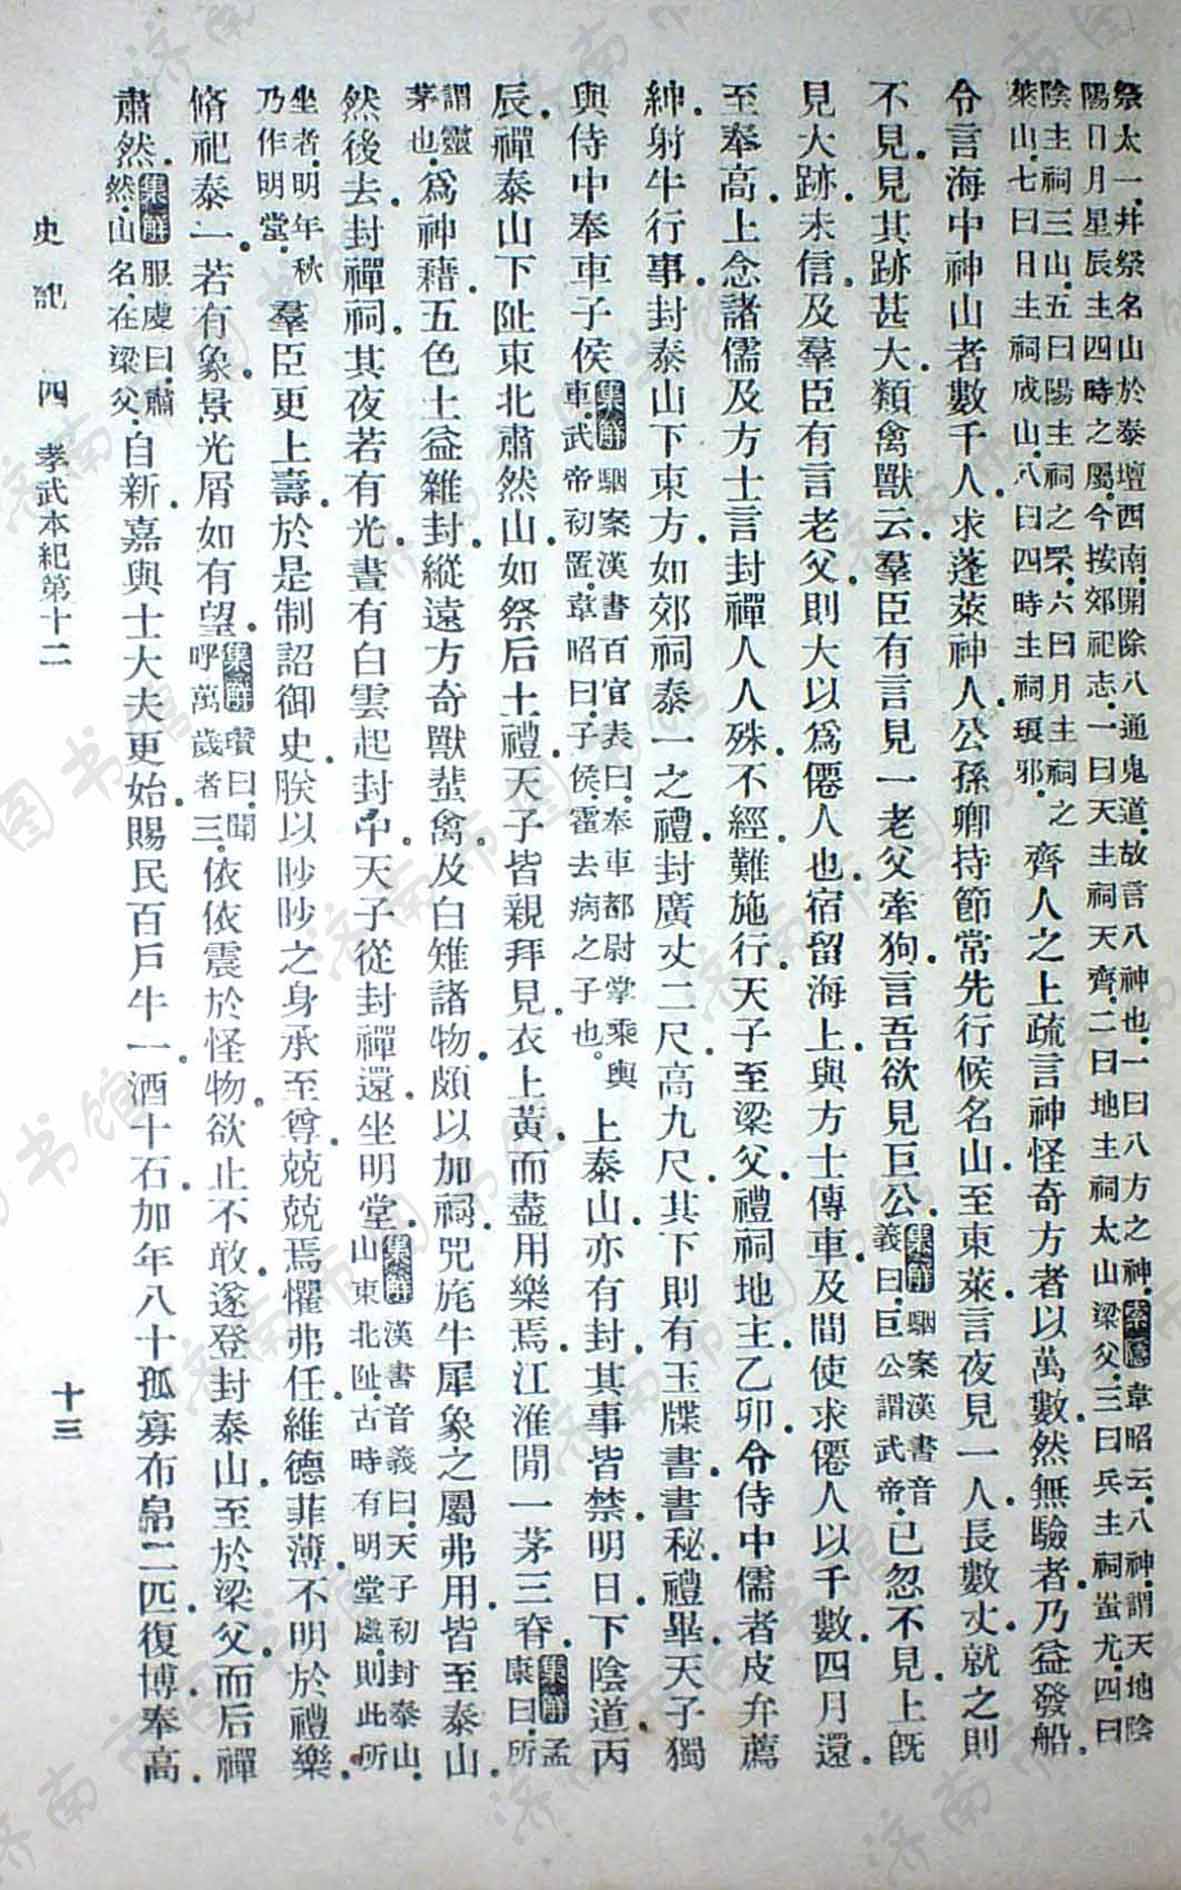 祭太一。并祭名山於泰壇西南。開除八通鬼道。故言八神也。一曰八方之神。索隱韋昭云。八神。謂天地陰
陽日月星辰主四時之屬。今按郊祀志。一曰天主祠天齊。二曰地主祠太山梁父。三曰兵主祠蚩尤。四曰
陰主祠三山。五曰陽主祠之罘。六曰月主祠之
萊山。七曰日主祠成山。八曰四時主祠琅邪。
齊人之上疏言神怪奇方者以萬數。然無驗者。乃益發船。
令言海中神山者數千人。求蓬萊神人。公孫卿持節常先行候名山。至東萊。言夜見一人。長數丈。就之則
不見。見其跡甚大。類禽獸云。羣臣有言見一老父牽狗。言吾欲見巨公。集解駰案漢書音義曰。巨公謂武帝。已忽不見。上旣
見大跡。未信。及羣臣有言老父。則大以爲僊人也。宿留海上。與方士傳車。及間使求僊人以千數。四月還
至奉高。上念諸儒及方士言封禪人人殊。不經。難施行。天子至梁父。禮祠地主。乙卯。令侍中儒者皮弁薦
紳。射牛行事。封泰山下東方。如郊祠泰一之禮。封廣丈二尺。高九尺。其下則有玉牒書。書秘。禮畢。天子獨
與侍中奉車子侯集解駰案漢書百官表曰。奉車都尉掌乘輿車。武帝初置。韋昭曰。子侯。霍去病之子也。上泰山。亦有封。其事皆禁。明日。下陰道。丙
辰。禪泰山下阯東北肅然山。如祭后土禮。天子皆親拜見。衣上黃。而盡用樂焉。江淮閒一茅三脊。集解孟康曰。所
謂靈茅也。爲神藉。五色土益雜封。縱遠方奇獸蜚禽。及白雉諸物。頗以加祠。兕旄牛犀象之屬弗用。皆至泰山。
然後去。封禪祠。其夜若有光。晝有白雲起封中。天子從封禪還。坐明堂。集解漢書音義曰。天子初封泰山。山東北阯。古時有明堂處。則此所
坐者。明年秋乃作明堂。羣臣更上壽。於是制詔御史。朕以眇眇之身承至尊。兢兢焉懼弗任。維德菲薄。不明於禮樂。
脩祀泰一。若有象。景光屑如有望。集解瓚曰。聞呼萬歲者三。依依震於怪物。欲止不敢。遂登封泰山。至於梁父。而后禪
肅然。集解服虔曰。肅然。山名。在梁父。自新。嘉與士大夫更始。賜民百戶牛一。酒十石。加年八十孤寡布帛二匹。復博。奉高。
史記 四 孝武本紀第十二 十三